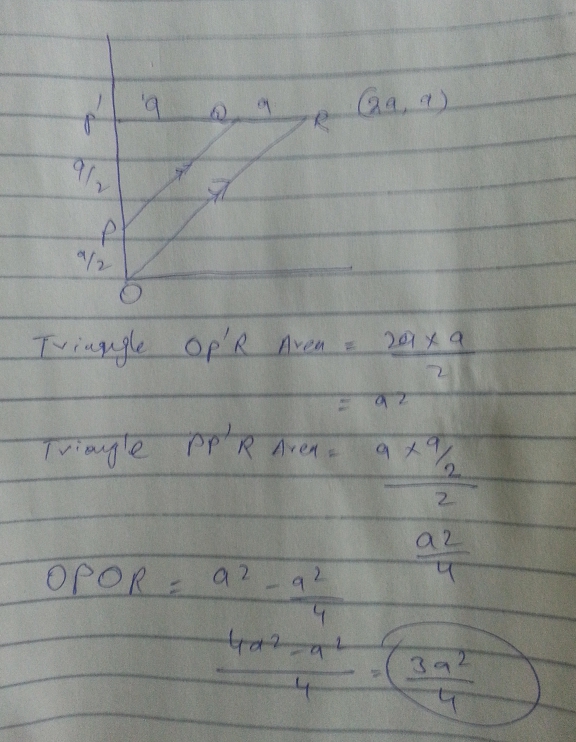 P' a Q a R (2a, a)
a/2
P
a/2
O
Triangle OP'R Area = 2a x a / 2
= a2
Triangle PP'R Area = a x a/2 / 2
a2/4
OPQR = a2 - a2/4
4a2 - a2 / 4 = 3a2/4